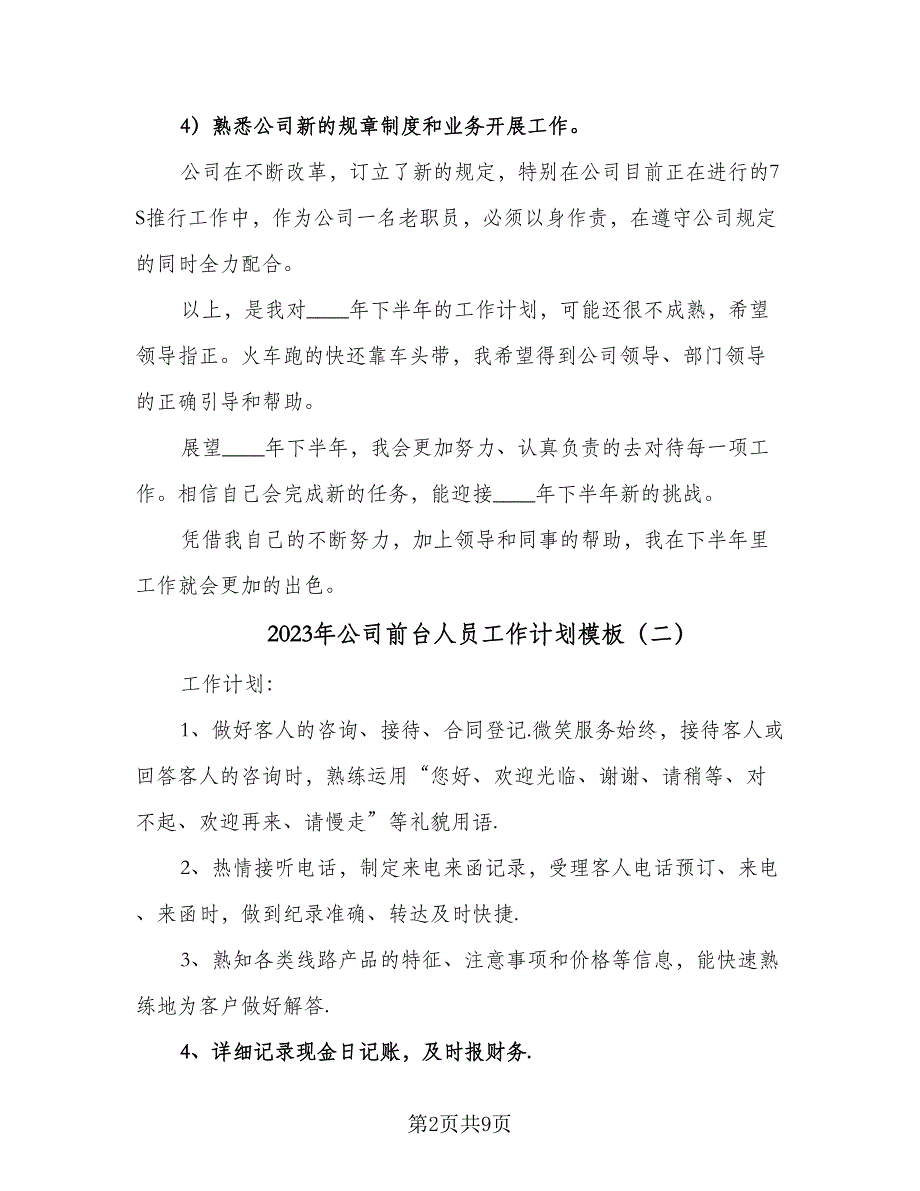 4）熟悉公司新的规章制度和业务开展工作。
公司在不断改革，订立了新的规定，特别在公司目前正在进行的7
S推行工作中，作为公司一名老职员，必须以身作责，在遵守公司规定
的同时全力配合。
以上，是我对____年下半年的工作计划，可能还很不成熟，希望
领导指正。火车跑的快还靠车头带，我希望得到公司领导、部门领导
的正确引导和帮助。
展望____年下半年，我会更加努力、认真负责的去对待每一项工
作。相信自己会完成新的任务，能迎接____年下半年新的挑战。
凭借我自己的不断努力，加上领导和同事的帮助，我在下半年里
工作就会更加的出色。
2023年公司前台人员工作计划模板（二）
工作计划：
1、做好客人的咨询、接待、合同登记.微笑服务始终，接待客人或
回答客人的咨询时，熟练运用“您好、欢迎光临、谢谢、请稍等、对
不起、欢迎再来、请慢走”等礼貌用语.
2、热情接听电话，制定来电来函记录，受理客人电话预订、来电
、来函时，做到纪录准确、转达及时快捷.
3、熟知各类线路产品的特征、注意事项和价格等信息，能快速熟
练地为客户做好解答.
4、详细记录现金日记账，及时报财务.
第2页共9页